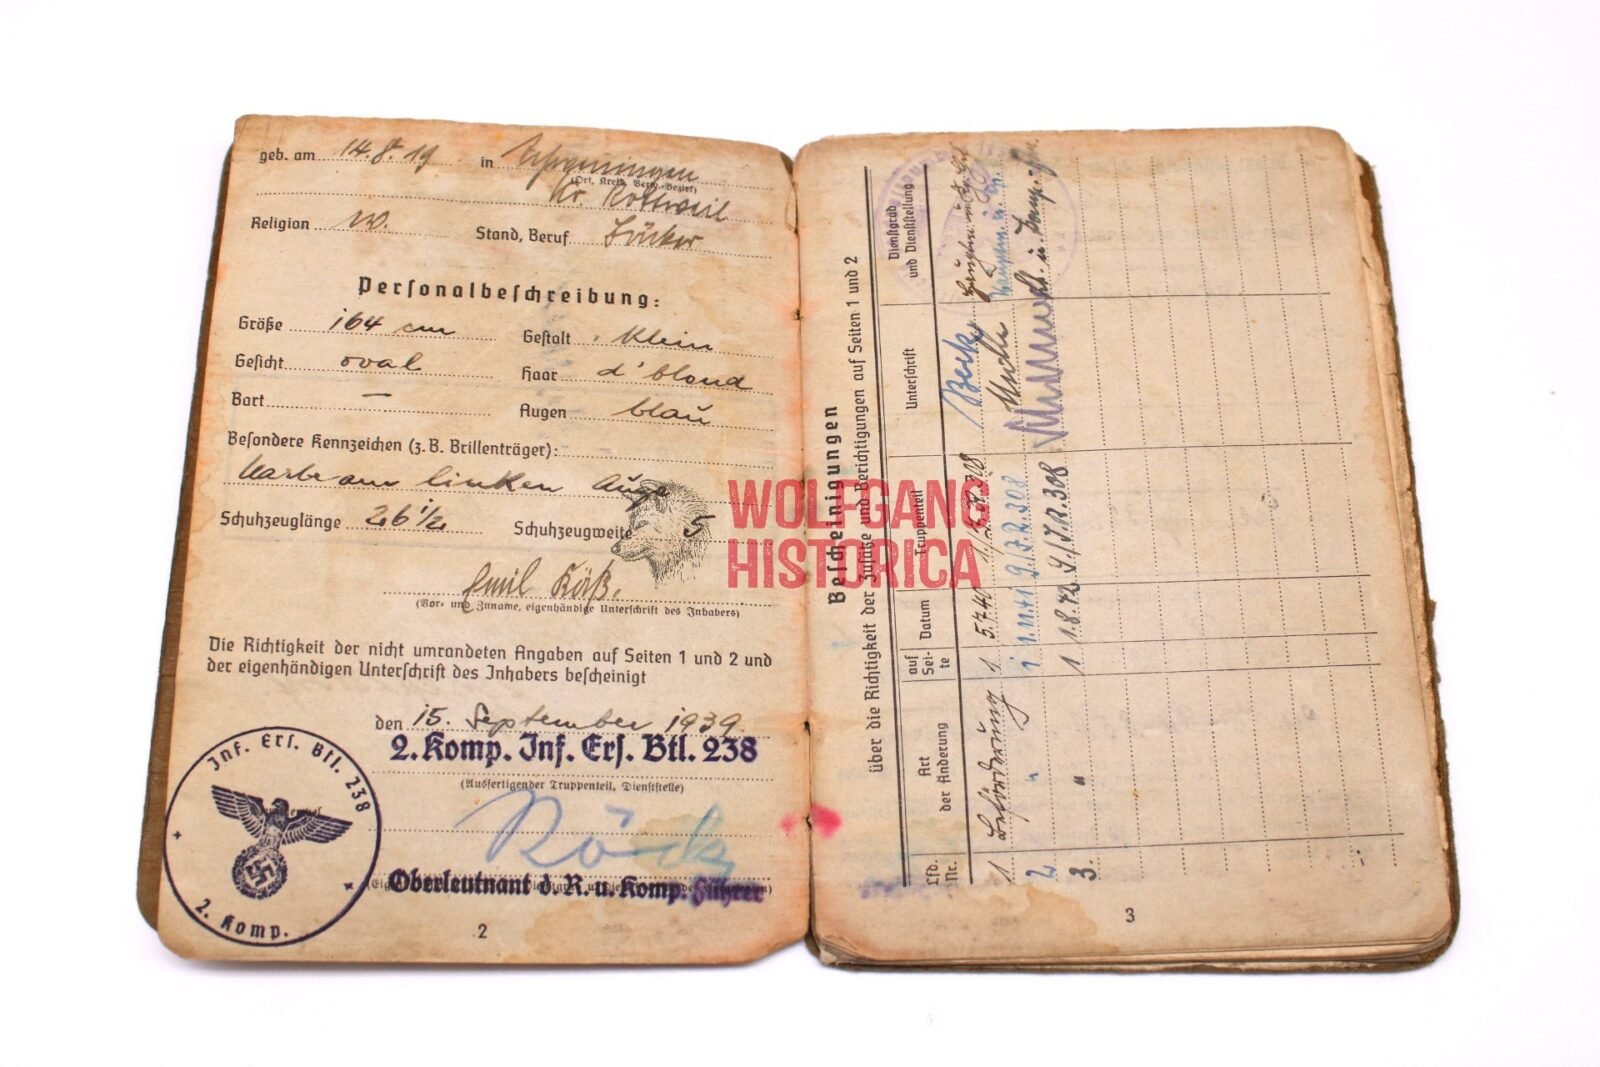 geb. am 14.8.19 in
(Ort, Kreis, Verw.-Bezirk)
Kr. Rottweil
Religion w. Stand, Beruf
Personalbeſchreibung:
Größe 164 cm Geſtalt klein
Geſicht oval Haar d'blond
Bart — Augen blau
Beſondere Kennzeichen (z. B. Brillenträger):
Narbe am linken Auge
Schuhzeuglänge 26 1/2 Schuhzeugweite 5
Emil
(Vor- und Zuname, eigenhändige Unterſchrift des Inhabers)
Die Richtigkeit der nicht umrandeten Angaben auf Seiten 1 und 2 und
der eigenhändigen Unterſchrift des Inhabers beſcheinigt
den 15. September 1939
2. Komp. Inf. Erſ. Btl. 238
(Ausfertigender Truppenteil, Dienſtſtelle)
Oberleutnant d. R. u. Komp. Führer
Inf. Erſ. Btl. 238
2. Komp.
2
WOLFGANG
HISTORICA
Beſcheinigungen
über die Richtigkeit der Zuſätze und Berichtigungen auf Seiten 1 und 2
Lfd. Nr. Art der Änderung auf Sei-te Datum Truppenteil Unterſchrift Dienſtgrad und Dienſtſtellung
1 Beförderung 1 5.7.40
2 " 1 1.11.41 9./I.R.308
3. " 1 1.8.42 9./I.R.308
3